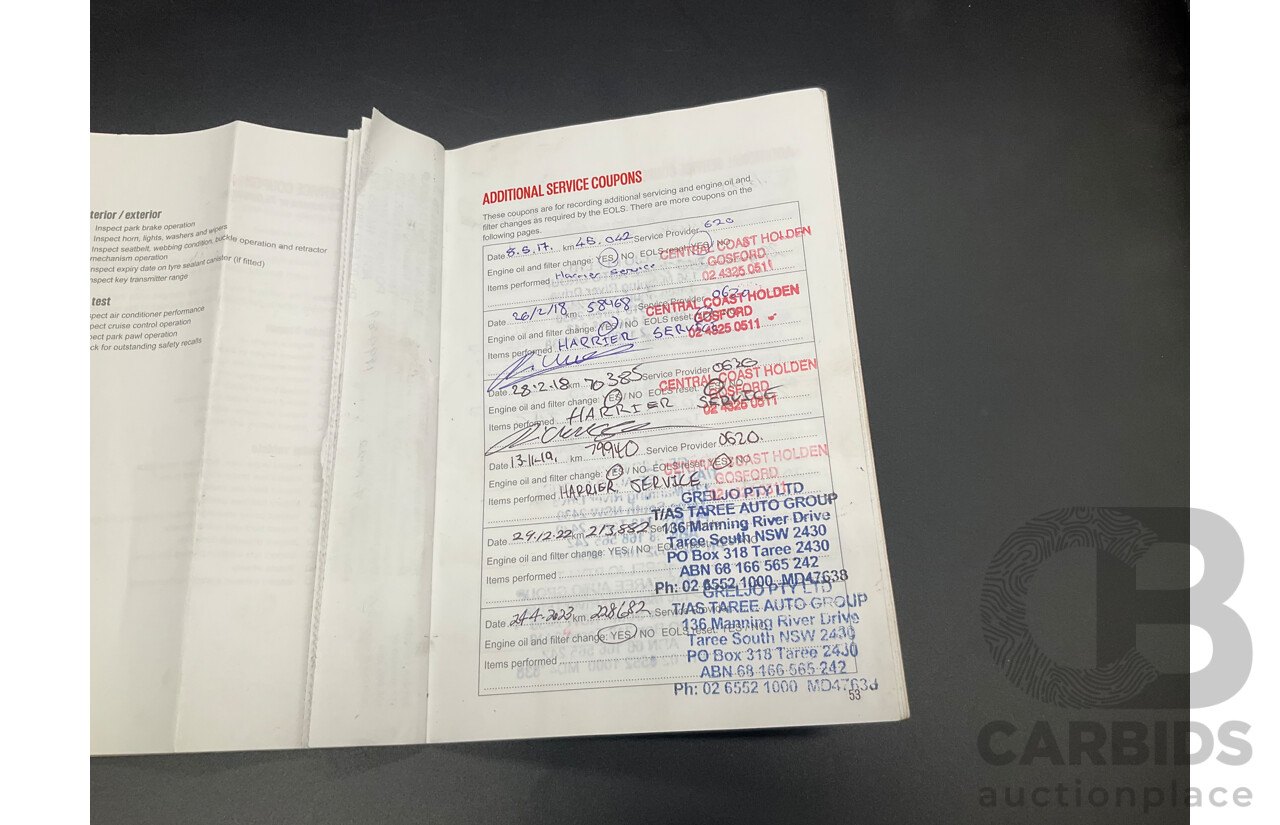 terior / exterior
Inspect park brake operation
Inspect horn, lights, washers and wipers
Inspect seatbelt, webbing condition, buckle operation and retractor
mechanism operation
nspect expiry date on tyre sealant canister (if fitted)
nspect key transmitter range
test
pect air conditioner performance
pect cruise control operation
pect park pawl operation
ck for outstanding safety recalls
ADDITIONAL SERVICE COUPONS
These coupons are for recording additional servicing and engine oil and
filter changes as required by the EOLS. There are more coupons on the
following pages.
Date 8.5.17. km 45.042 Service Provider 620
Engine oil and filter change: YES / NO EOLS reset: YES / NO
Items performed Harrier Service
CENTRAL COAST HOLDEN
GOSFORD
02 4325 0511
Date 26/2/18 km 58468 Service Provider 0620
Engine oil and filter change: YES / NO EOLS reset:
Items performed HARRIER SERVICE
CENTRAL COAST HOLDEN
GOSFORD
02 4325 0511
Date 28.2.18 km 70385 Service Provider 0620
Engine oil and filter change: YES / NO EOLS reset: YES / NO
Items performed HARRIER SERVICE
CENTRAL COAST HOLDEN
GOSFORD
02 4325 0511
Date 13.11.19. km 79940 Service Provider 0620.
Engine oil and filter change: YES / NO EOLS reset: YES / NO
Items performed HARRIER SERVICE
CENTRAL COAST HOLDEN
GOSFORD
Date 29.12.22 km 213,882
Engine oil and filter change: YES / NO EOLS reset: YES / NO
Items performed
GRELJO PTY LTD
T/AS TAREE AUTO GROUP
136 Manning River Drive
Taree South NSW 2430
PO Box 318 Taree 2430
ABN 68 166 565 242
Ph: 02 6552 1000 MD47638
Date 24-4-2023 km 228682 Service Provider
Engine oil and filter change: YES / NO EOLS reset: YES / NO
Items performed
GRELJO PTY LTD
T/AS TAREE AUTO GROUP
136 Manning River Drive
Taree South NSW 2430
PO Box 318 Taree 2430
ABN 68 166 565 242
Ph: 02 6552 1000 MD47638
53
CB
CARBIDS
auctionplace